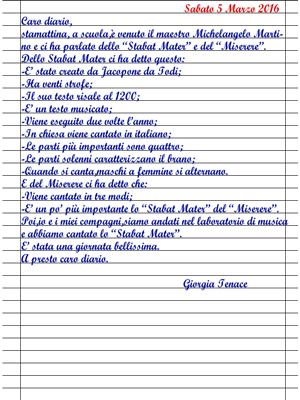 Sabato 5 Marzo 2016
Caro diario,
stamattina, a scuola,è venuto il maestro Michelangelo Marti-
no e ci ha parlato dello “Stabat Mater” e del “Miserere”.
Dello Stabat Mater ci ha detto questo:
-E’ stato creato da Jacopone da Todi;
-Ha venti strofe;
-Il suo testo risale al 1200;
-E’ un testo musicato;
-Viene eseguito due volte l’anno;
-In chiesa viene cantato in italiano;
-Le parti più importanti sono quattro;
-Le parti solenni caratterizzano il brano;
-Quando si canta,maschi a femmine si alternano.
E del Miserere ci ha detto che:
-Viene cantato in tre modi;
-E’ un po’ più importante lo “Stabat Mater” del “Miserere”.
Poi,io e i miei compagni,siamo andati nel laboratorio di musica
e abbiamo cantato lo “Stabat Mater”.
E’ stata una giornata bellissima.
A presto caro diario.
Giorgia Tenace